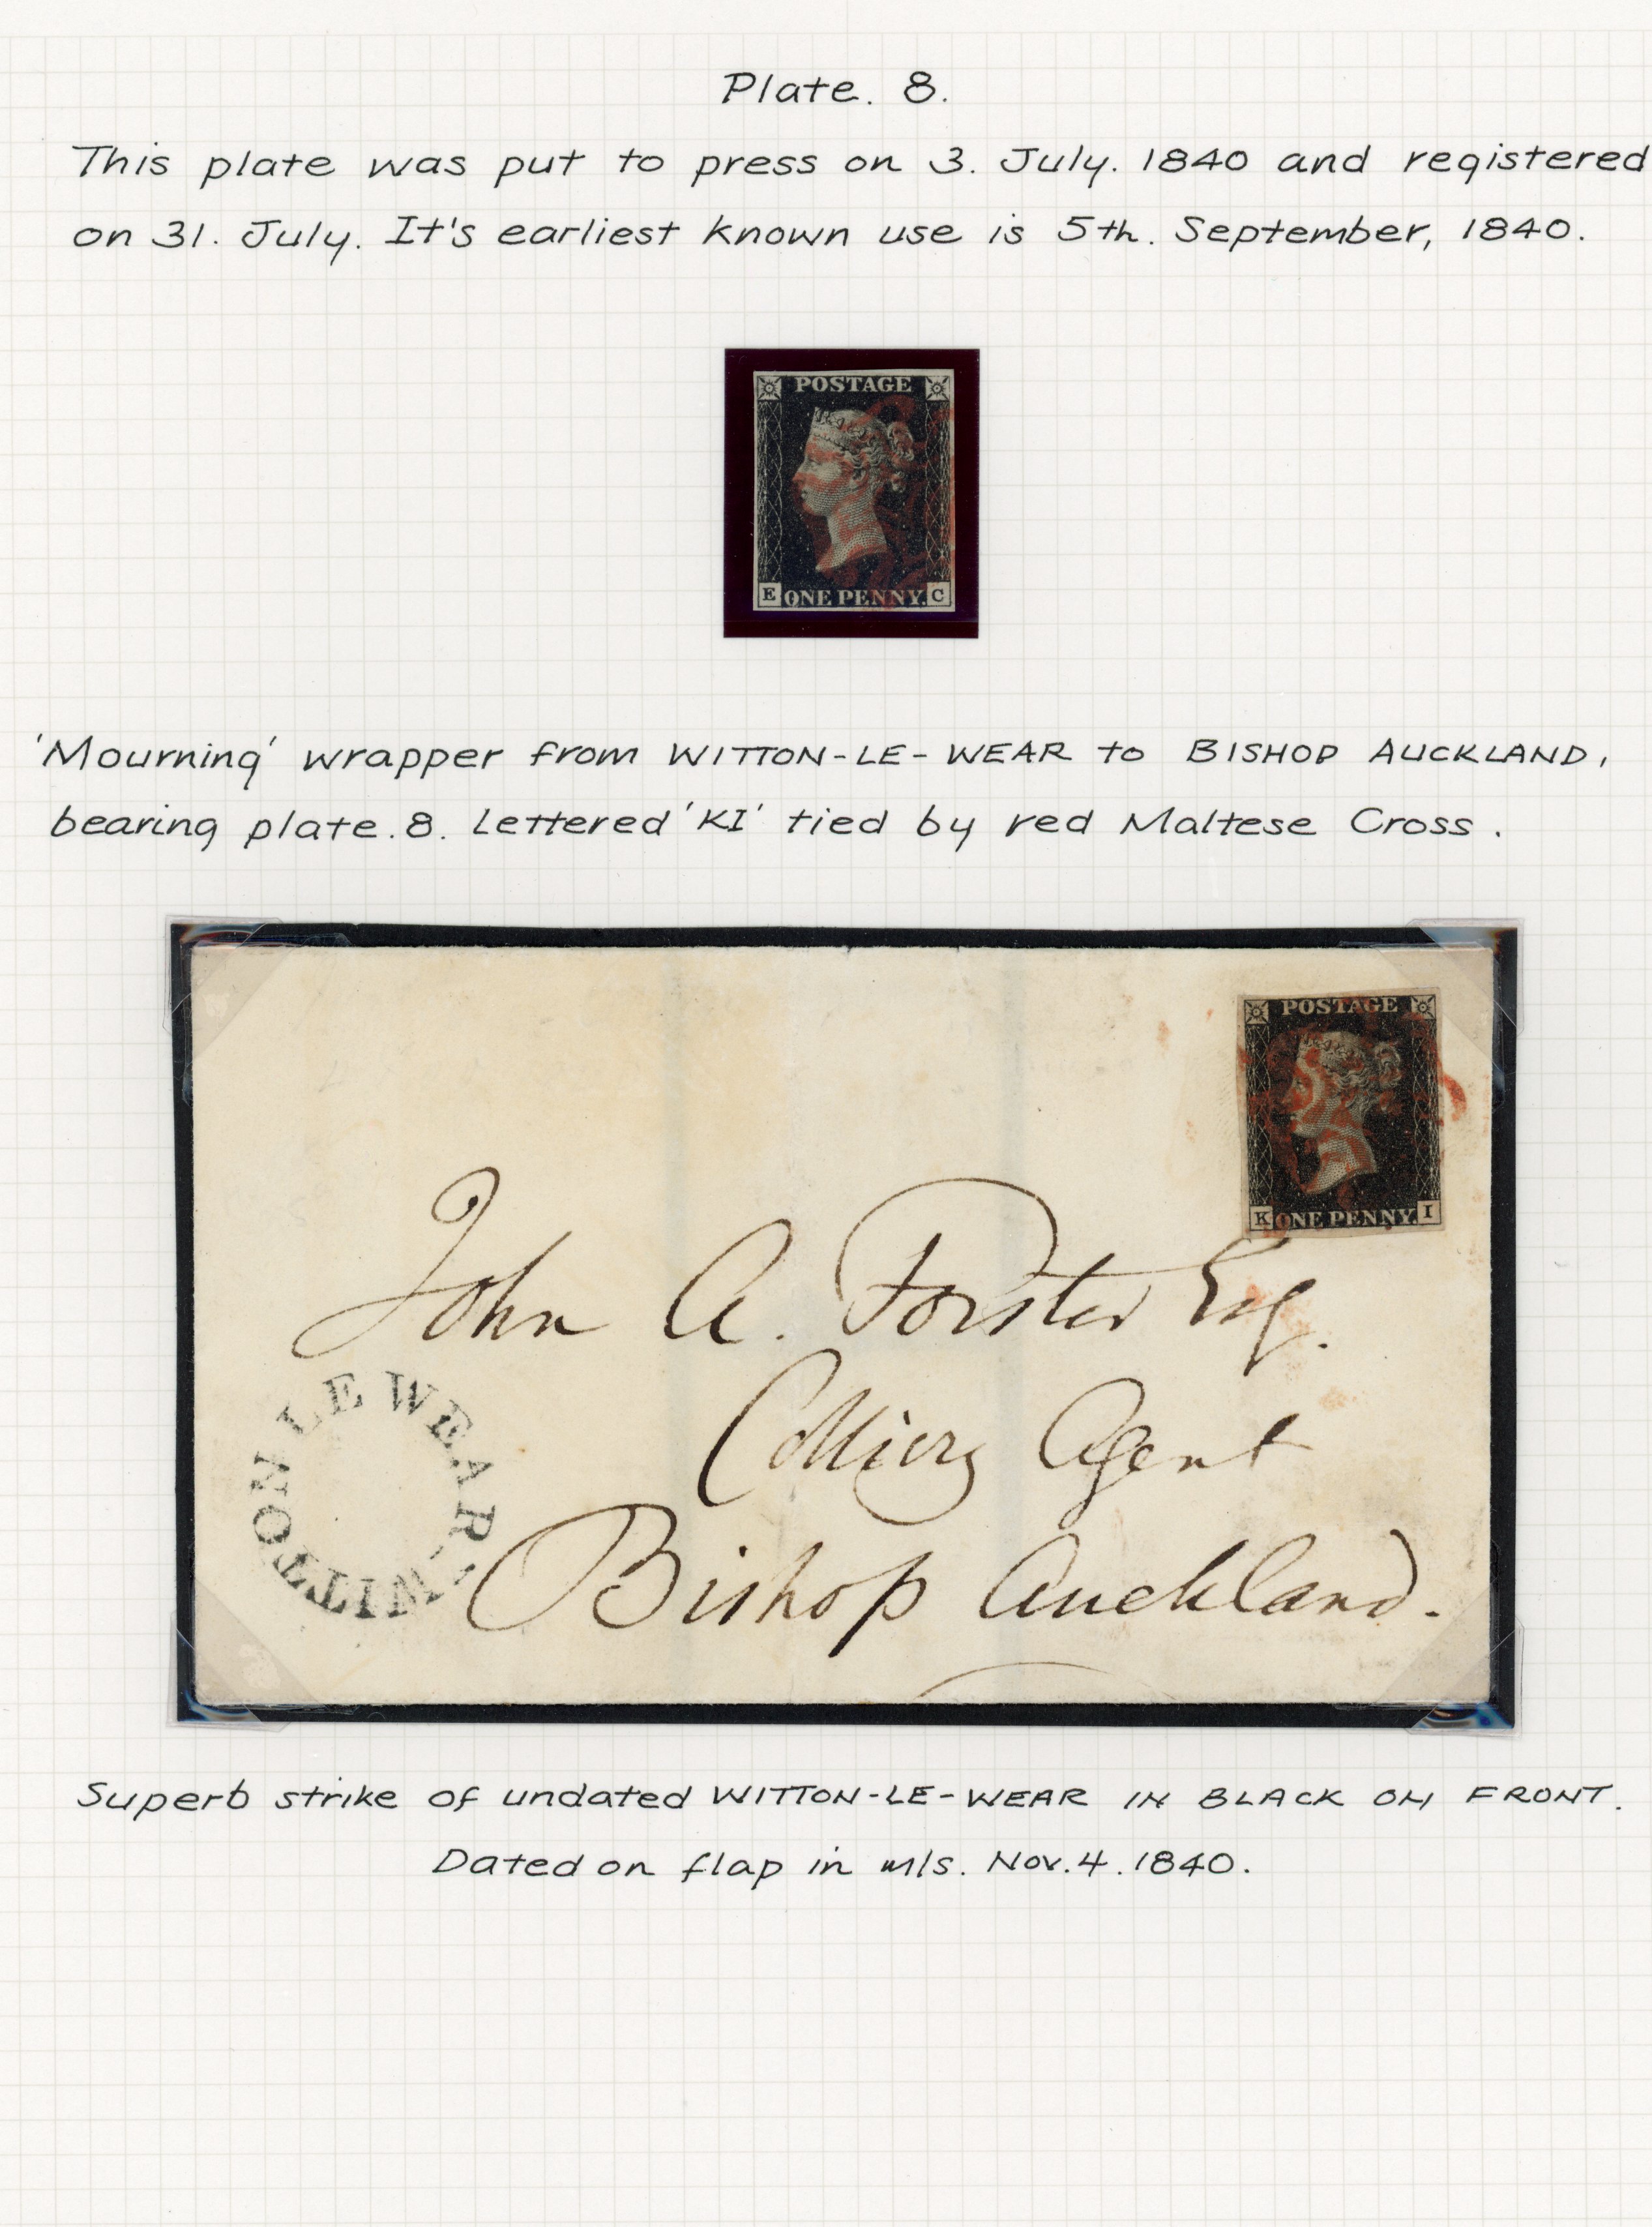 Plate. 8.
This plate was put to press on 3. July. 1840 and registered
on 31. July. It's earliest known use is 5th. September, 1840.
POSTAGE
E ONE PENNY. C
'Mourning' wrapper from WITTON-LE-WEAR to BISHOP AUCKLAND,
bearing plate.8. Lettered 'KI' tied by red Maltese Cross.
POSTAGE
K ONE PENNY. I
John A. Forster Esq.
Colliery Agent
Bishop Auckland.
WITTON LE WEAR
Superb strike of undated WITTON-LE-WEAR IN BLACK ON FRONT.
Dated on flap in m/s. Nov. 4. 1840.